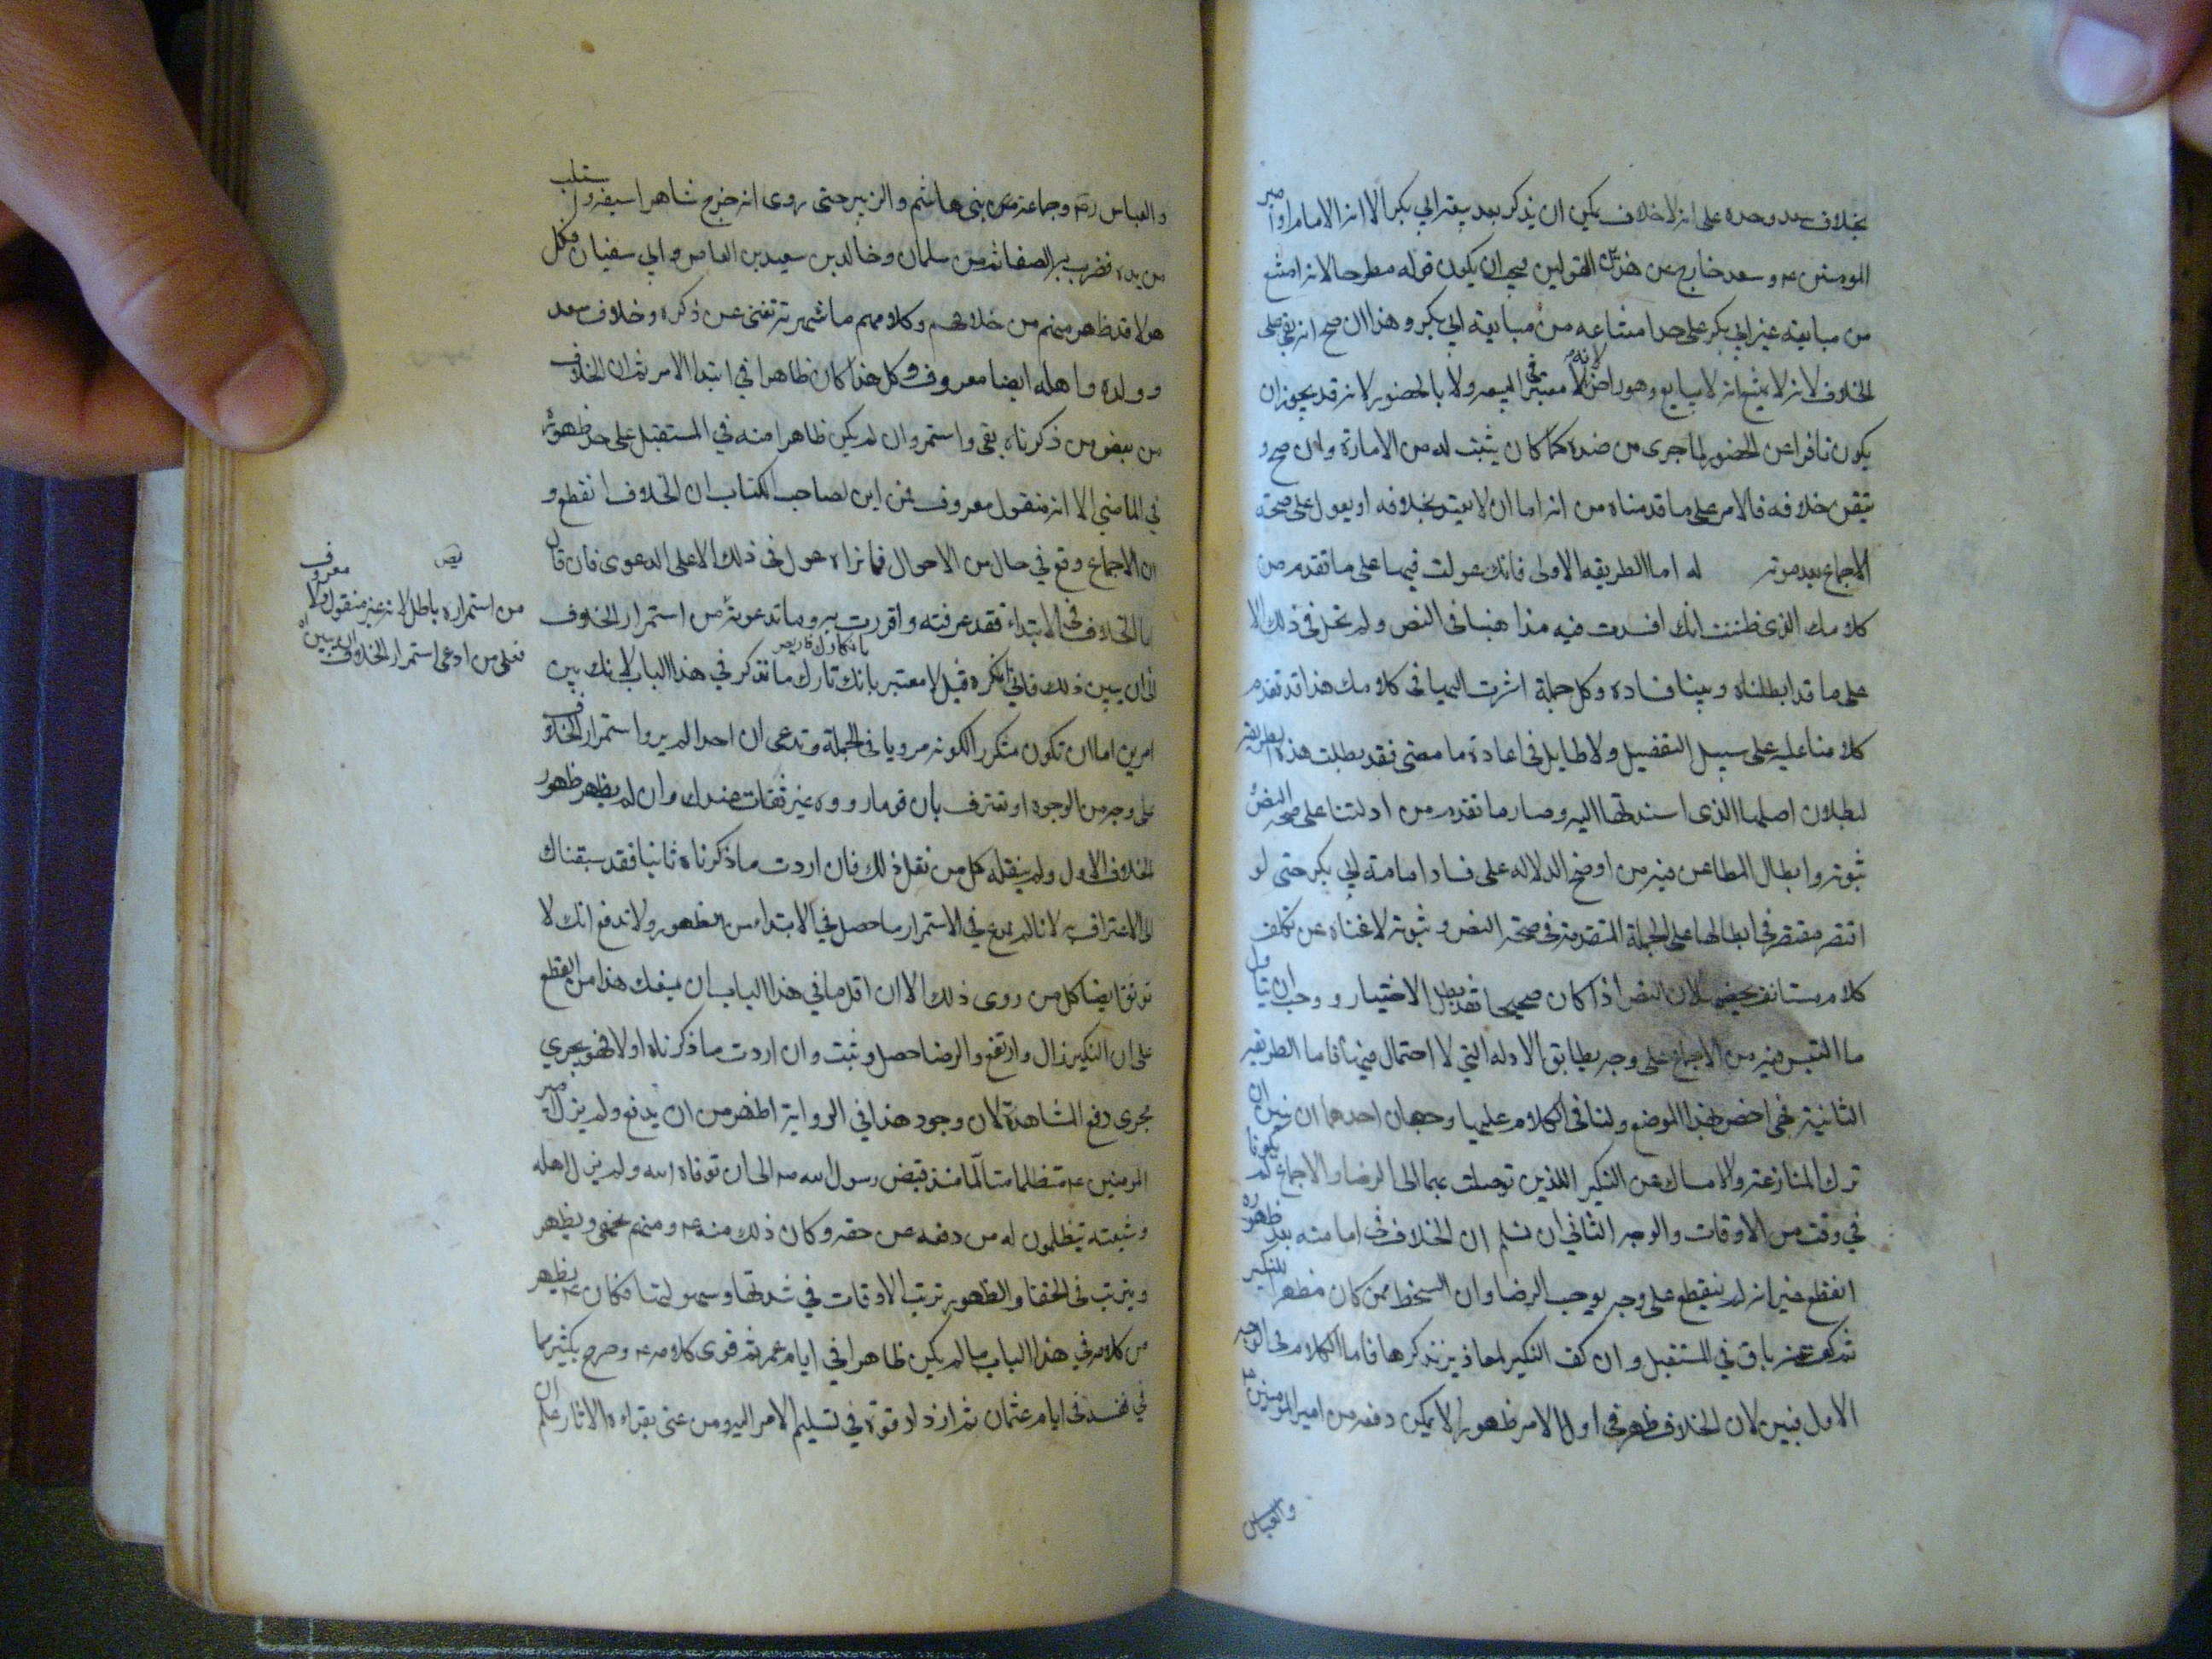 بخلاف سعد وحده على انه لا خلاف يمكن ان يذكر بعد بيعة ابي بكر الا انه الامام او امير
المومنين ع و سعد خارج عن هذين القولين فيجب ان يكون قوله مطرحا لانه امتنع
من مبايعة غير ابي بكر على حد امتناعه من مبايعة ابي بكر و هذا ان صح انه بقي على
الخلاف لانه لا يمتنع انه لا يبايع وهو راض لانه لا معتبر في البيعه ولا بالحضور لانه قد يجوز ان
يكون تاخر عن الحضور لما جرى من ضده كما كان يثبت له من الامارة وان صح و
تيقن خلافه فالامر على ما قدمناه من انه اما ان لا يعتد بخلافه او يعول على صحة
الاجماع بعد موته له اما الطريقه الاولى فانك عولت فيها على ما تقدم من
كلامك الذى ظننت انك افسدت فيه مذاهبنا فى النص ولم تحل فى ذلك الا
على ما قد ابطلناه وبينا فساده وكل جملة اشرت اليها فى كلامك هذا قد تقدم
كلامنا عليه على سبيل التفصيل ولا طايل فى اعادة ما مضى فقد بطلت هذه الطريقة
لبطلان اصلها الذى اسندتها اليه وصار ما تقدم من ادلتنا على صحة النص و
ثبوته وابطال المطاعن فيه من اوضح الدلاله على فساد امامة ابي بكر حتى لو
اقتصر مقتصر فى ابطالها على الجملة المتقدمة فى صحة النص و ثبوته لاغناه عن تكلف
كلام مستانف يخصها لان النص اذا كان صحيحا فقد بطل الاختيار و وجب ان يتاول
ما التبس فيه من الاجماع على وجه يطابق الادله التي لا احتمال فيها فاما الطريقة
الثانية فهى اخص بهذا الموضع ولنا فى الكلام عليها وجهان احدهما ان نبين ان
ترك المنازعة والامساك عن النكير اللذين توصلت بهما الى الرضا والاجماع لم يكونا
في وقت من الاوقات والوجه الثاني ان نسلم ان الخلاف فى امامته بعد ظهوره
انقطع غير انه لم ينقطع على وجه يوجب الرضا وان السخط ممن كان مظهرا للنكير
ثم كف عنه باق في المستقبل و ان كف النكير لمعاذير نذكرها فاما الكلام فى الوجه
الاول فبين لان الخلاف ظهر في اول الامر ظهورا لا يمكن دفعه من امير المومنين ع
والعباس
والعباس رض وجماعة من بني هاشم و الزبير حتى روى انه خرج شاهرا سيفه و استلب
من يده فضرب به الصفا ثم من سلمان و خالد بن سعيد بن العاص و ابي سفيان فكل
هولا قد ظهر منهم من خلافهم وكلامهم ما شهرته تغني عن ذكره و خلاف سعد
و ولده و اهله ايضا معروف و كل هذا كان ظاهرا في ابتدا الامر ثم ان الخلاف
من بعض من ذكرناه بقى و استمر وان لم يكن ظاهرا منه في المستقبل على حد ظهوره
في الماضي الا انه منقول معروف فمن اين لصاحب الكتاب ان الخلاف انقطع و
ان الاجماع وقع في حال من الاحوال فما نراه عول فى ذلك الا على الدعوى فان قال
اما الخلاف فى الابتداء فقد عرفته و اقررت به و ما تدعونه من استمرار الخلاف
من استمراره باطل لانه غير منقول ولا معروف
فعلى من ادعى استمرار الخلاف ان يبين
ان يبين ذلك فاني انكره قيل لا معتبر بانكارك
بانك تارك ما نذكر في هذا الباب لانك بين
امرين اما ان تكون منكرا لكونه مرويا فى الجملة و تدعى ان احدا لم يرو استمرار الخلاف
على وجه من الوجوه او تعترف بان قوما رووه غير ثقات عندك و ان لم يظهر ظهور
الخلاف الاول ولم ينقله كل من نقل ذلك فان اردت ما ذكرناه ثانيا فقد سبقناك
الى الاعتراف به لانا لم ندع في الاستمرار ما حصل في الابتداء من الظهور ولا ندفع انك لا
توثق ايضا كل من روى ذلك الا ان اقل ما في هذا الباب ان يمنعك هذا من القطع
على ان النكير زال وارتفع والرضا حصل و ثبت و ان اردت ما ذكرناه اولا فهو يجري
مجرى دفع المشاهدة لان وجود هذا في الرواية اظهر من ان يدفع ولم يزل امير
المومنين ع متظلما متالما منذ قبض رسول الله ص الى ان توفاه الله ولم يزل اهله
و شيعته يتظلمون له من دفعه عن حقه و كان ذلك منه ع و منهم يخفى و يظهر
و يترتب فى الخفا و الظهور ترتب الاوقات في شدتها و سهولتها فكان ع يظهر
من كلامه في هذا الباب ما لم يكن ظاهرا في ايام عمر ثم قوى كلامه ع و صرح بكثير مما
في نفسه فى ايام عثمان ثم ازداد قوة في تسليم الامر اليه و من عني بقراءة الاثار علم ان